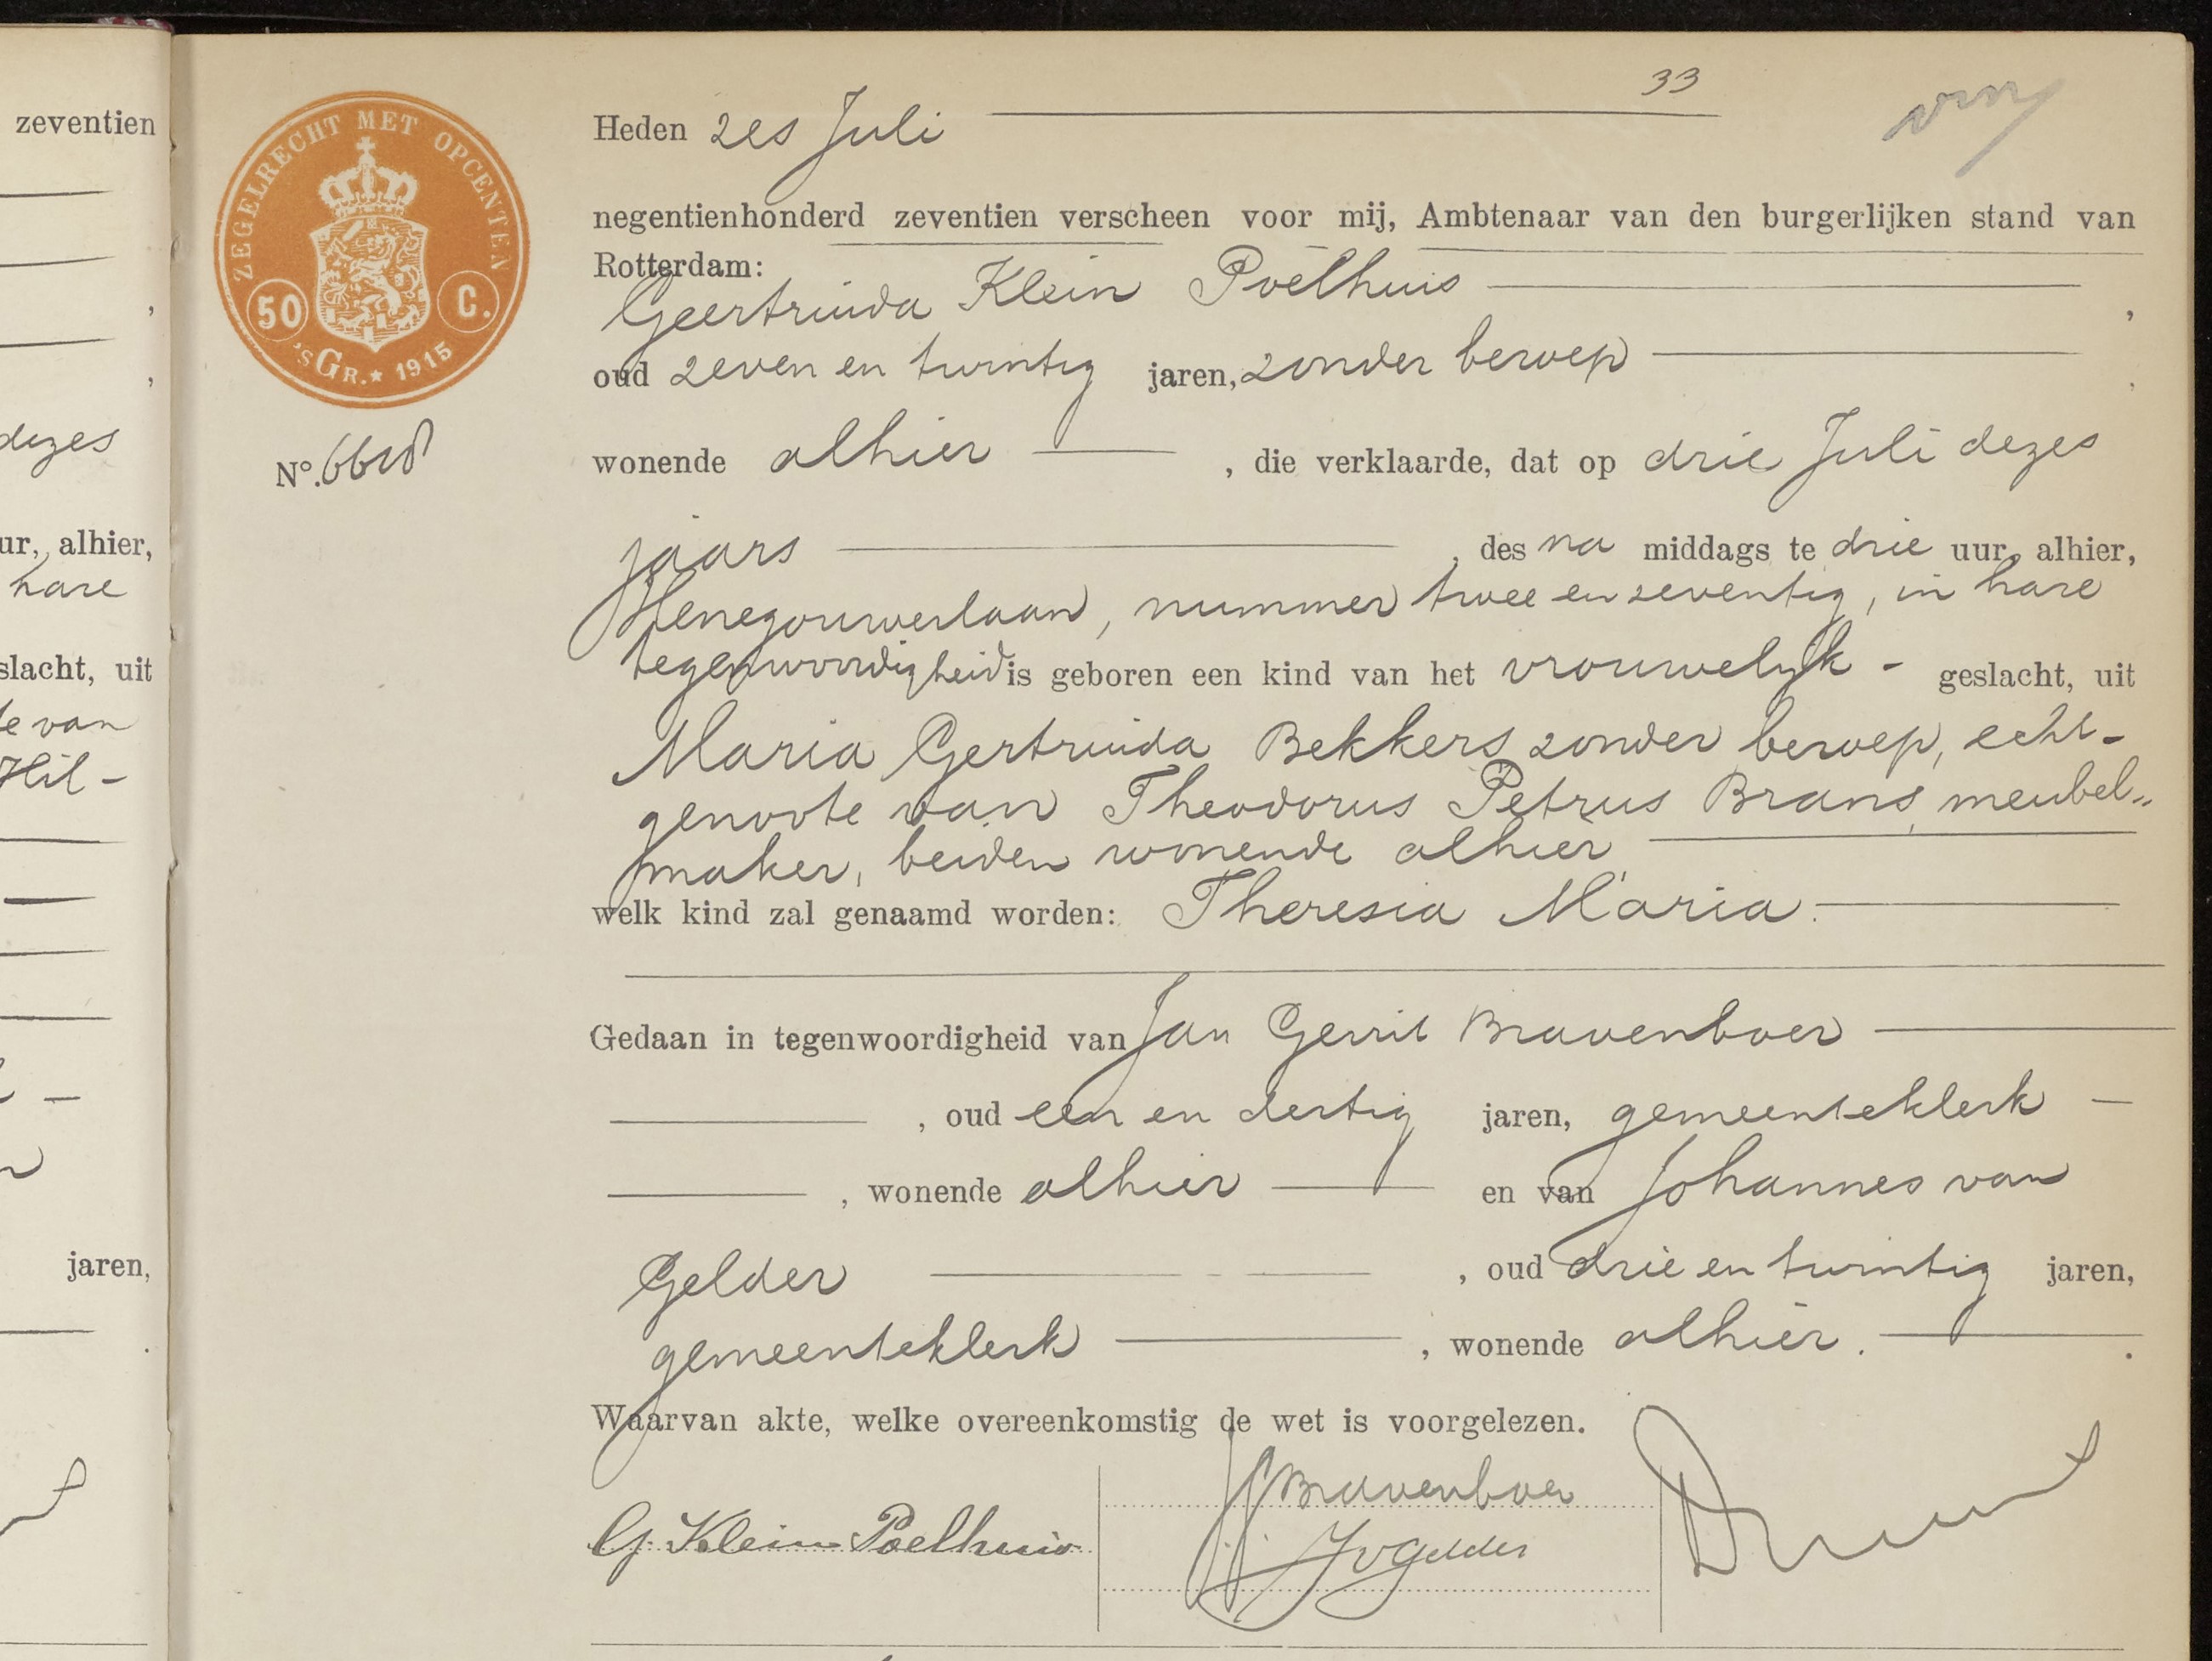 33
Heden zes Juli
negentienhonderd zeventien verscheen voor mij, Ambtenaar van den burgerlijken stand van
Rotterdam:
Geertruida Klein Poelhuis ,
oud zeven en twintig jaren, zonder beroep ,
wonende alhier , die verklaarde, dat op drie Juli dezes
jaars , des na middags te drie uur, alhier,
Henegouwerlaan, nummer twee en zeventig, in hare
tegenwoordigheid is geboren een kind van het vrouwelijk - geslacht, uit
Maria Gertruida Bekkers, zonder beroep, echt-
genoote van Theodorus Petrus Brans, meubel-
maker, beiden wonende alhier
welk kind zal genaamd worden: Theresia Maria.
Gedaan in tegenwoordigheid van Jan Gerrit Bravenboer
, oud een en dertig jaren, gemeenteklerk
, wonende alhier en van Johannes van
Gelder , oud drie en twintig jaren,
gemeenteklerk , wonende alhier.
Waarvan akte, welke overeenkomstig de wet is voorgelezen.
G. Klein Poelhuis
JGBravenboer
JvGelder
ZEGELRECHT MET OPCENTEN
50 C.
'S GR. ★ 1915
Nº.
zeventien
,
,
dezes
ur, alhier,
hare
slacht, uit
te van
Hil-
jaren,
.